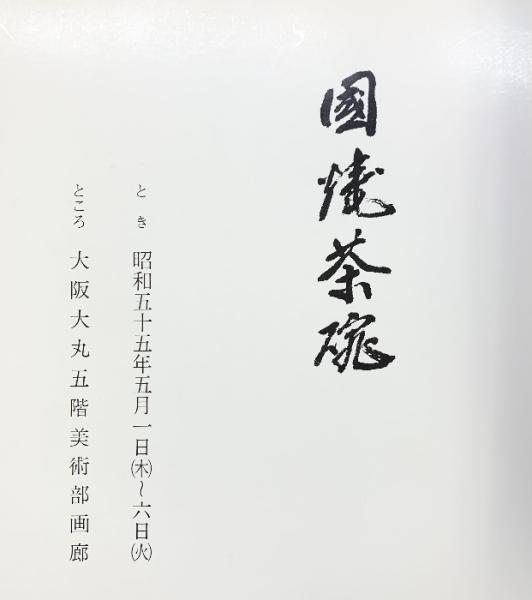 國焼茶碗
とき 昭和五十五年五月一日㈭〜六日㈫
ところ 大阪大丸五階美術部画廊